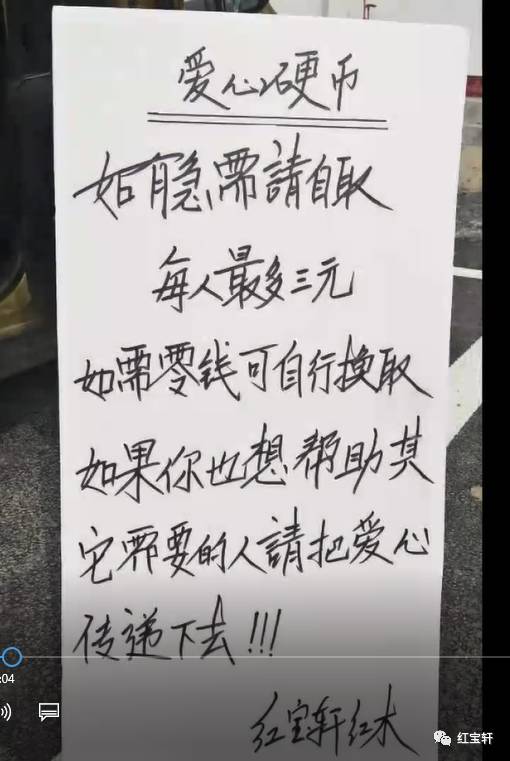 爱心硬币
如有急需請自取
每人最多三元
如需零钱可自行换取
如果你也想帮助其
它需要的人請把爱心
传递下去!!!
红宝轩红木
:04
红宝轩